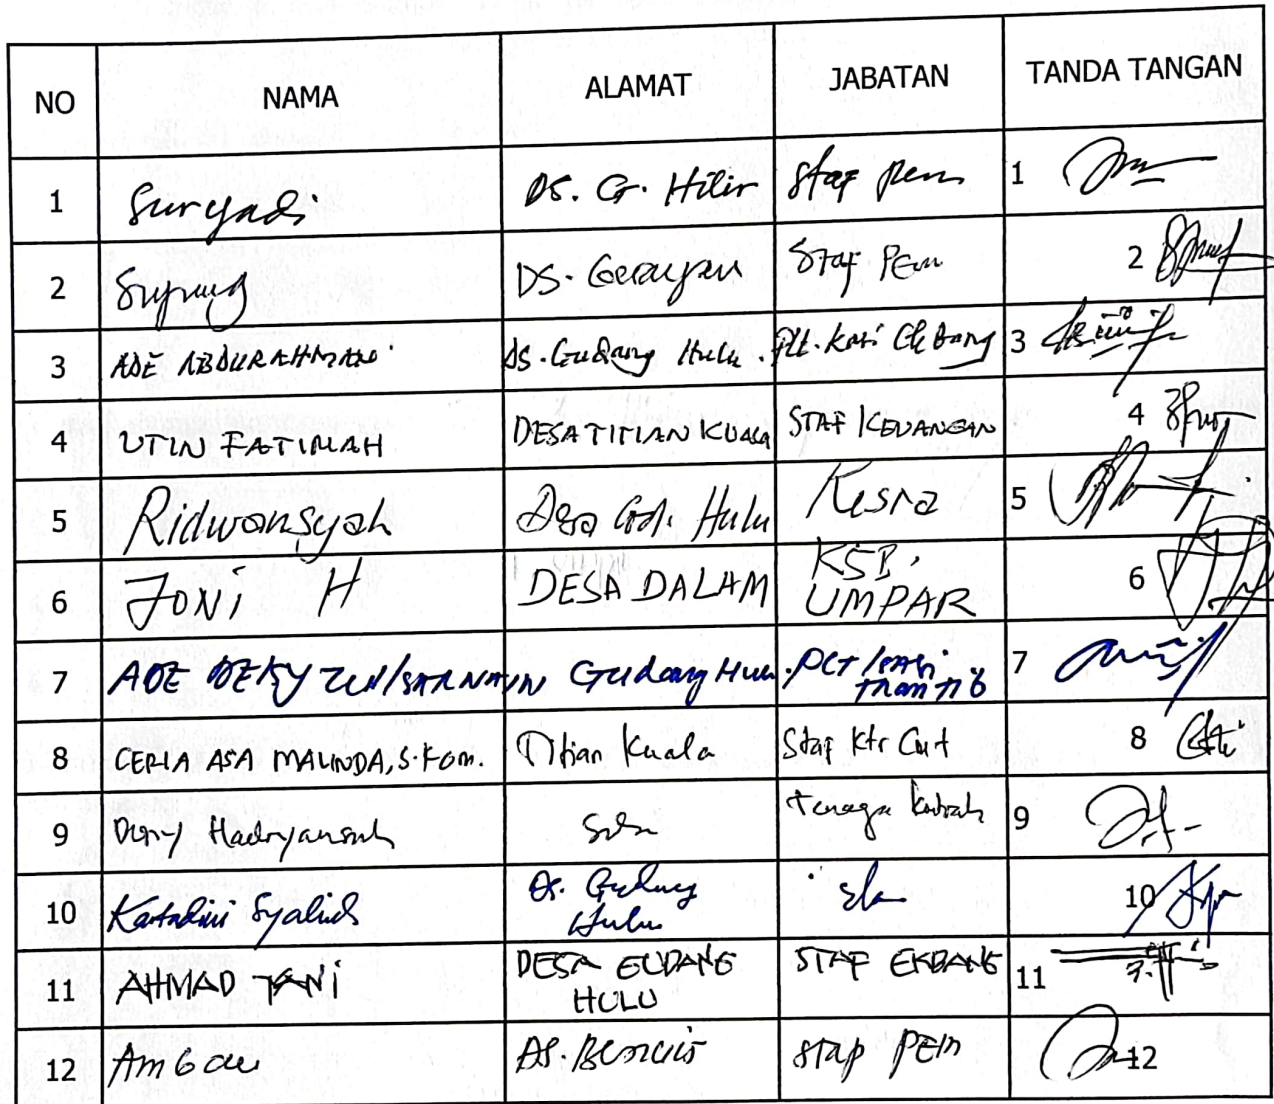 NO NAMA ALAMAT JABATAN TANDA TANGAN
1 Suryadi Ds. G. Hilir Staf pem 1
2 DS. Staf Pem 2
3 ADE ABDURAHMAN Ds. Gudang Hulu Plt. Kasi Ekbang 3
4 UTIN FATIMAH DESA TITIAN KUALA STAF KEUANGAN 4
5 Ridwansyah Desa Gd. Hulu Kesra 5
6 JONI H DESA DALAM KSB. UMPAR 6
7 ADE DEKY Gudang Hulu PLT/KASI TRANTIB 7
8 CERIA ASA MALINDA, S.Kom. Titian Kuala Staf Ktr Cmt 8
9 Hadryansah Tenaga 9
10 Syahid Ds. Gudang Hulu 10
11 AHMAD YANI DESA GUDANG HULU STAF EKBANG 11
12 Ds. Staf PEM 12